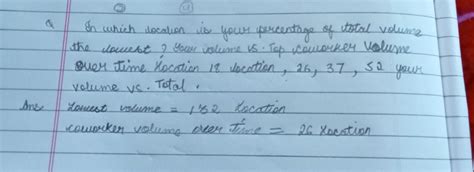 Q In which location is your percentage of total volume
the lowest ? Your volume vs. Top coworker Volume
over time Location 12 location, 26, 37, 52 your
volume vs. Total.
Ans Lowest volume = 152 Location
coworker volume over time = 26 Location